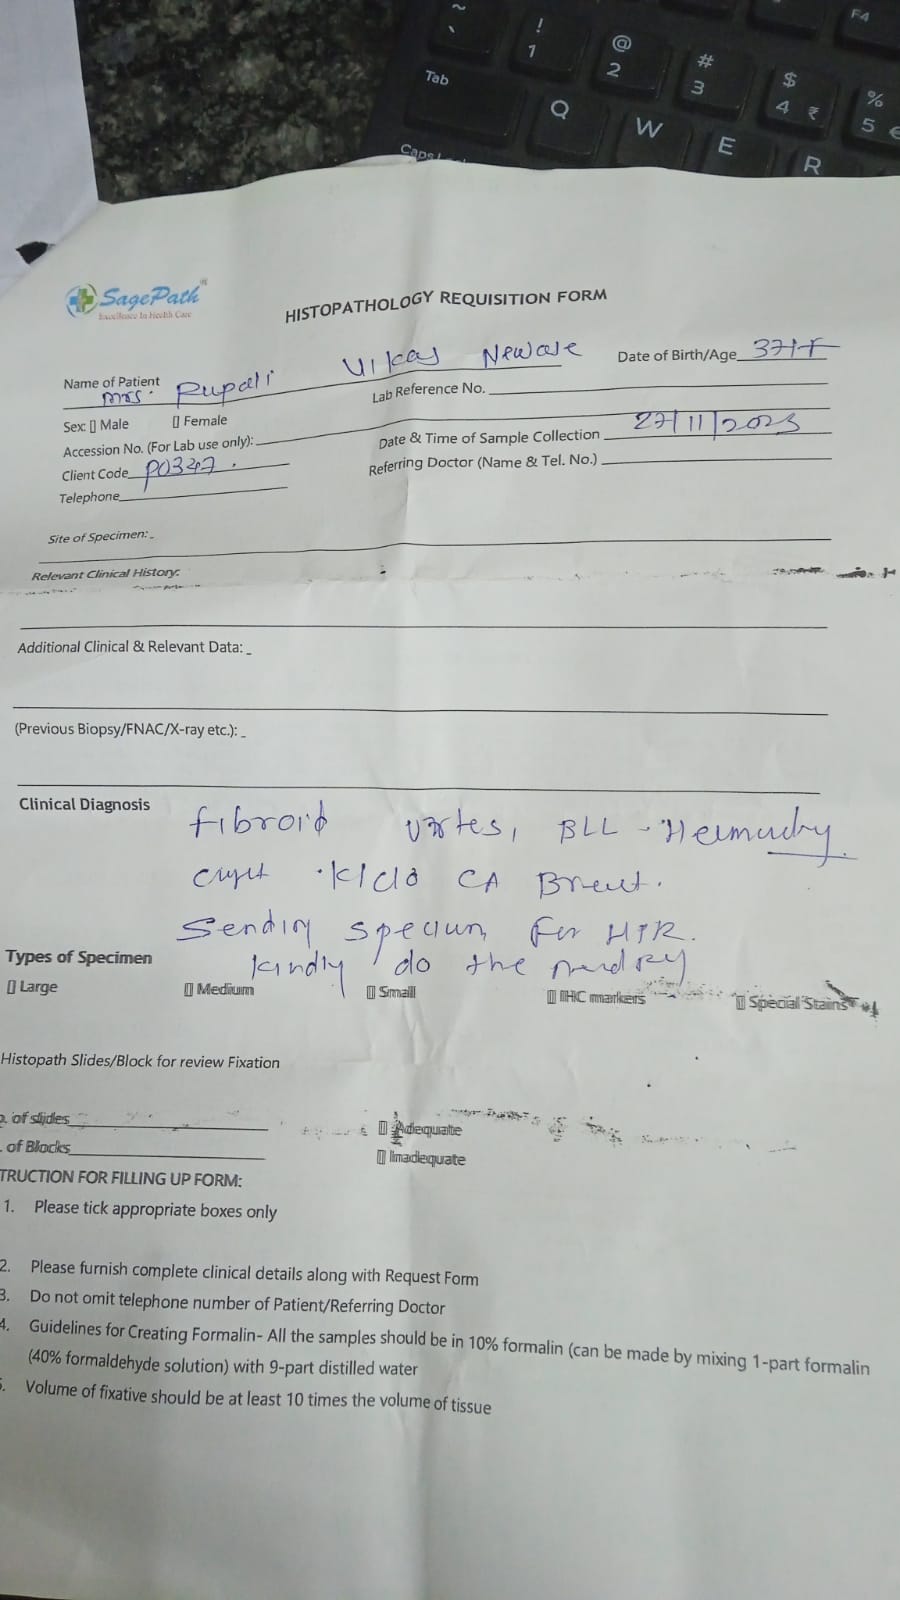 ~
`
!
1
@
2
#
3
$
4 ₹
%
5 €
F4
Tab
Q
W
E
R
Caps
SagePath
Excellence In Health Care
HISTOPATHOLOGY REQUISITION FORM
Name of Patient Mrs. Rupali Vikas Newase
Date of Birth/Age 37/F
Lab Reference No.
Sex: [] Male [] Female
Accession No. (For Lab use only):
Date & Time of Sample Collection 27/11/2023
Client Code P0347.
Referring Doctor (Name & Tel. No.)
Telephone
Site of Specimen:
Relevant Clinical History:
Additional Clinical & Relevant Data:
(Previous Biopsy/FNAC/X-ray etc.):
Clinical Diagnosis
Fibroid BLL -
K/C/O CA Breast.
Sending specimen for HPR.
Kindly do the
Types of Specimen
[] Large [] Medium [] Small [] IHC markers [] Special Stains
Histopath Slides/Block for review Fixation
of slides
[] Adequate
of Blocks
[] Inadequate
TRUCTION FOR FILLING UP FORM:
1. Please tick appropriate boxes only
2. Please furnish complete clinical details along with Request Form
3. Do not omit telephone number of Patient/Referring Doctor
4. Guidelines for Creating Formalin- All the samples should be in 10% formalin (can be made by mixing 1-part formalin
(40% formaldehyde solution) with 9-part distilled water
5. Volume of fixative should be at least 10 times the volume of tissue